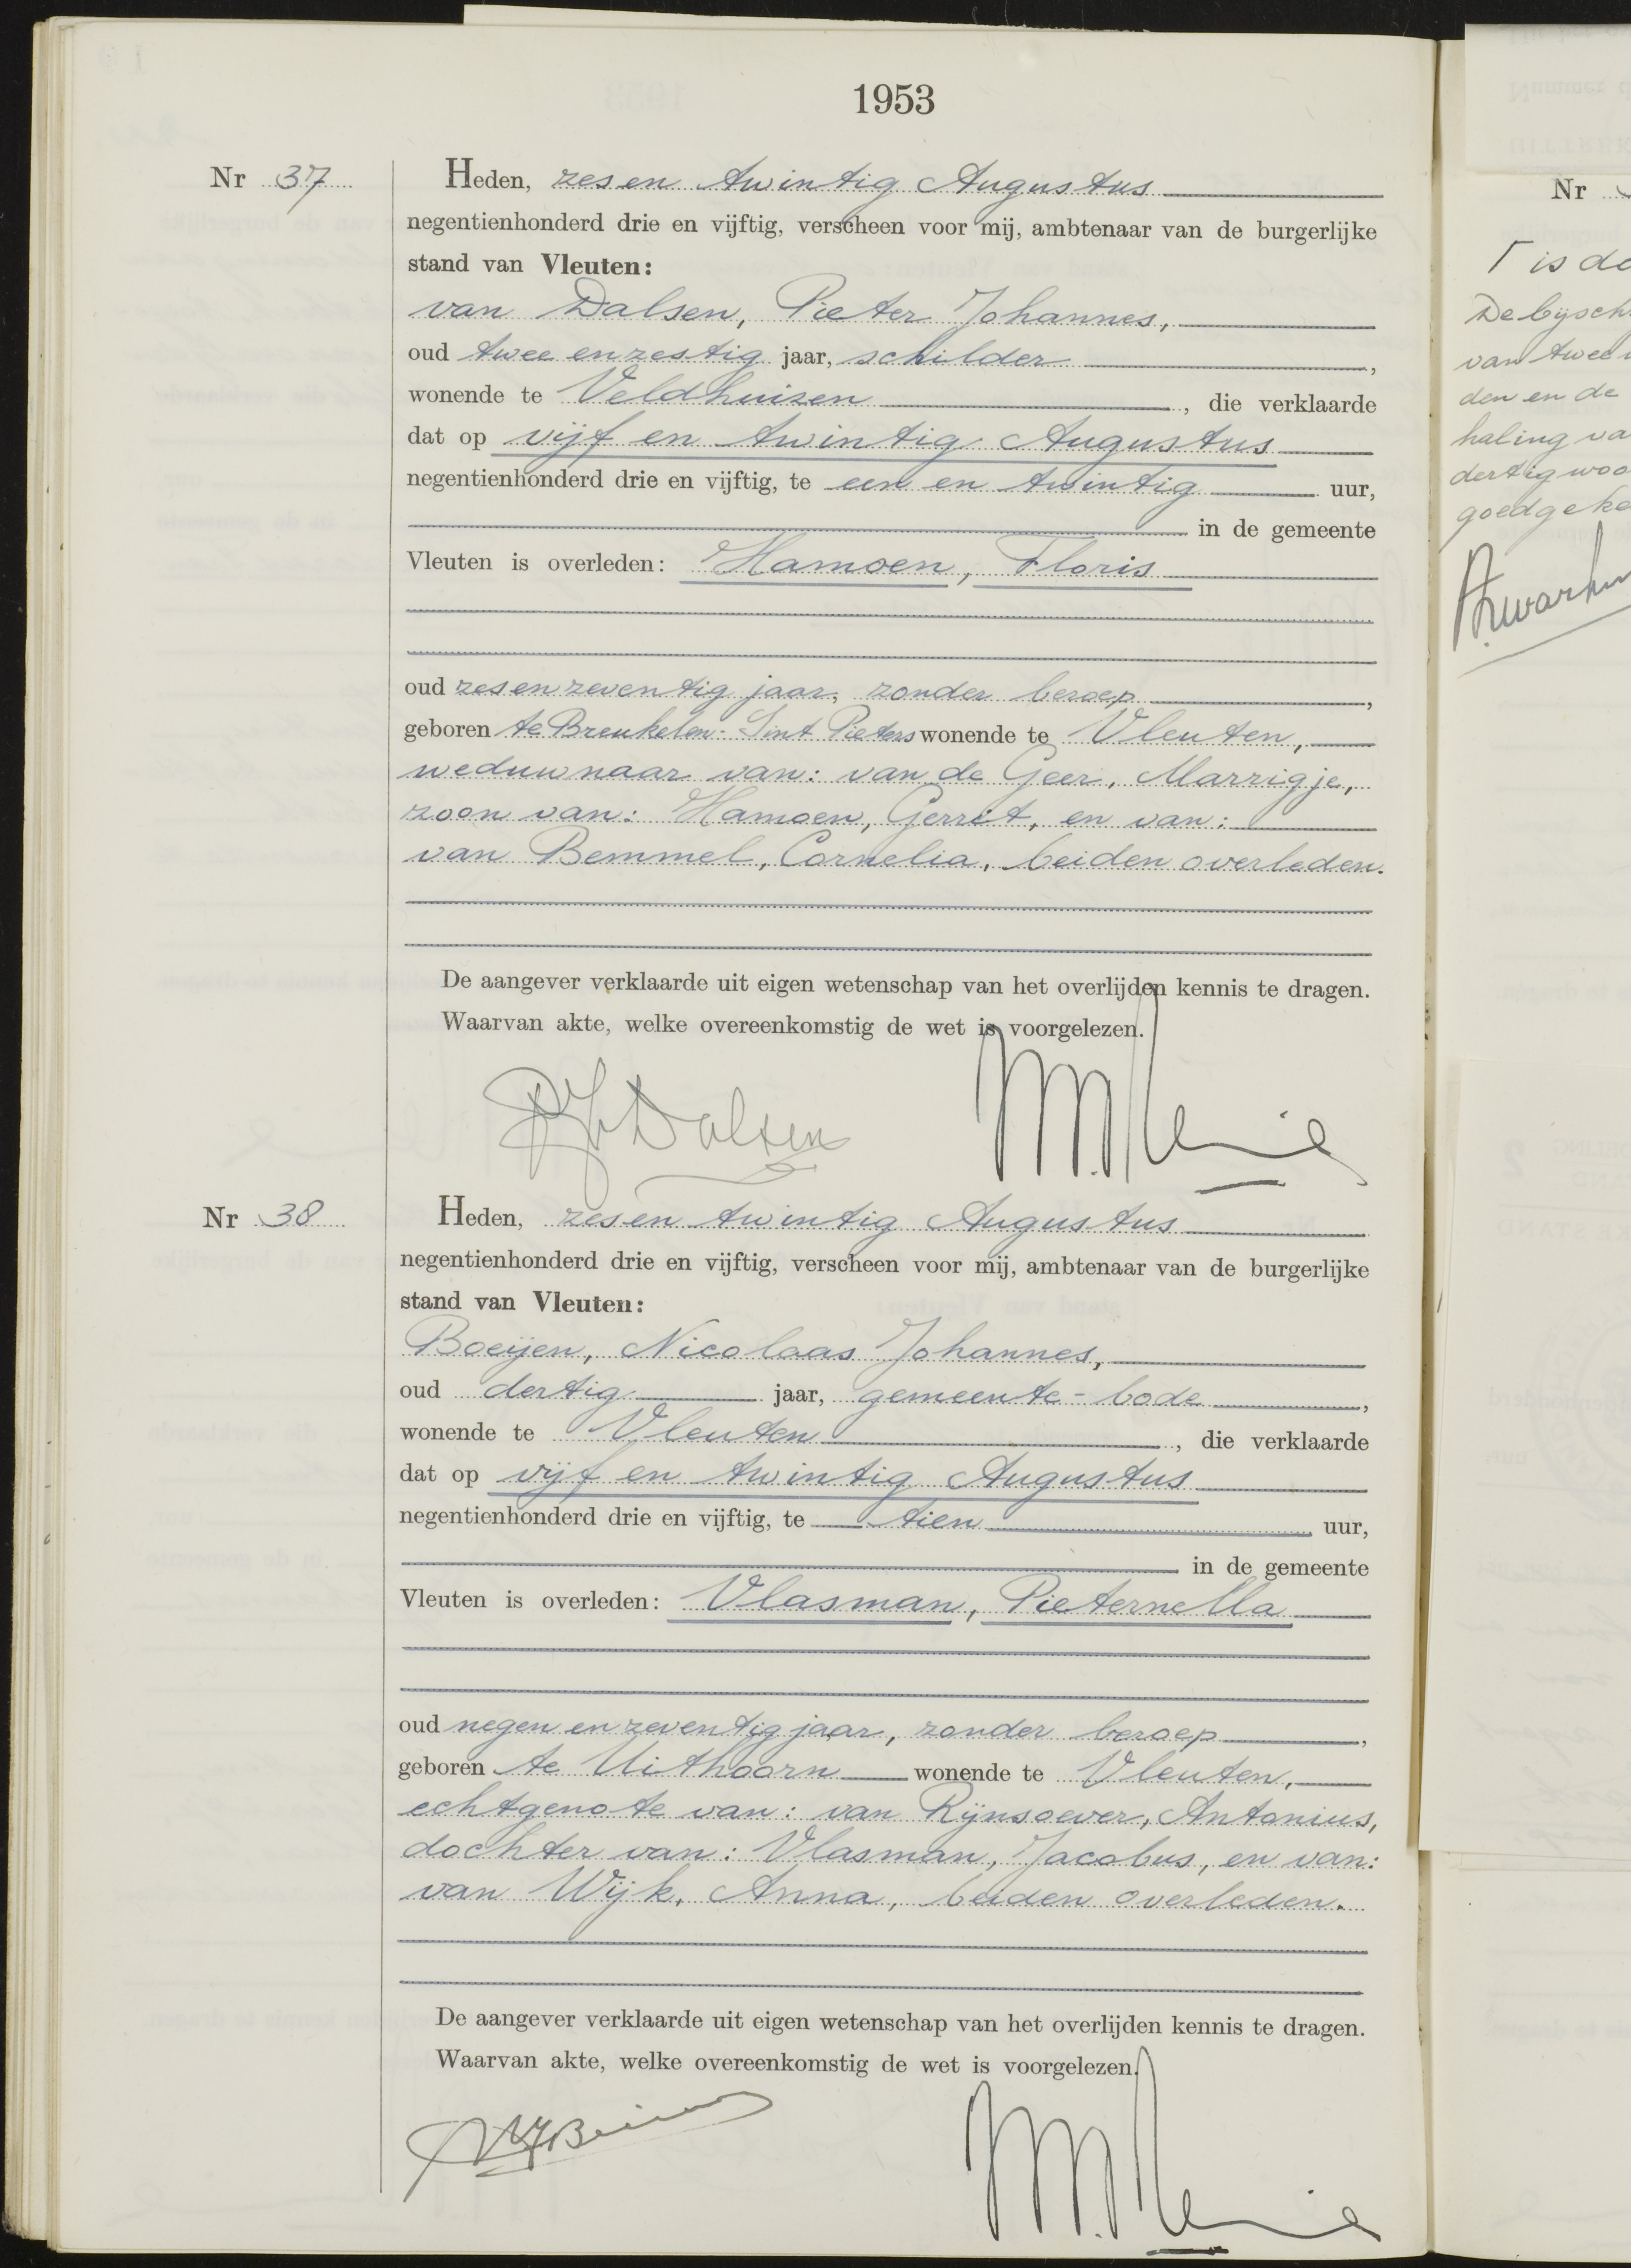 1953
Nr 37
Heden, zes en twintig Augustus
negentienhonderd drie en vijftig, verscheen voor mij, ambtenaar van de burgerlijke
stand van Vleuten:
van Dalsen, Pieter Johannes,
oud twee en zestig jaar, schilder,
wonende te Veldhuizen, die verklaarde
dat op vijf en twintig Augustus
negentienhonderd drie en vijftig, te een en twintig uur,
in de gemeente
Vleuten is overleden: Hamoen, Floris
oud zes en zeventig jaar, zonder beroep,
geboren te Breukelen-Sint Pieters wonende te Vleuten,
weduwnaar van: van de Geer, Marrigje,
zoon van: Hamoen, Gerrit, en van:
van Bemmel, Cornelia, beiden overleden.
De aangever verklaarde uit eigen wetenschap van het overlijden kennis te dragen.
Waarvan akte, welke overeenkomstig de wet is voorgelezen.
PJvDalsen
Nr 38
Heden, zes en twintig Augustus
negentienhonderd drie en vijftig, verscheen voor mij, ambtenaar van de burgerlijke
stand van Vleuten:
Boeijen, Nicolaas Johannes,
oud dertig jaar, gemeente-bode,
wonende te Vleuten, die verklaarde
dat op vijf en twintig Augustus
negentienhonderd drie en vijftig, te tien uur,
in de gemeente
Vleuten is overleden: Vlasman, Pieternella
oud negen en zeventig jaar, zonder beroep,
geboren te Uithoorn wonende te Vleuten,
echtgenote van: van Rijnsoever, Antonius,
dochter van: Vlasman, Jacobus, en van:
van Wijk, Anna, beiden overleden.
De aangever verklaarde uit eigen wetenschap van het overlijden kennis te dragen.
Waarvan akte, welke overeenkomstig de wet is voorgelezen.
Nr
is do
De bijsch
van twee
den en de
haling va
dertig woo
goedgeke